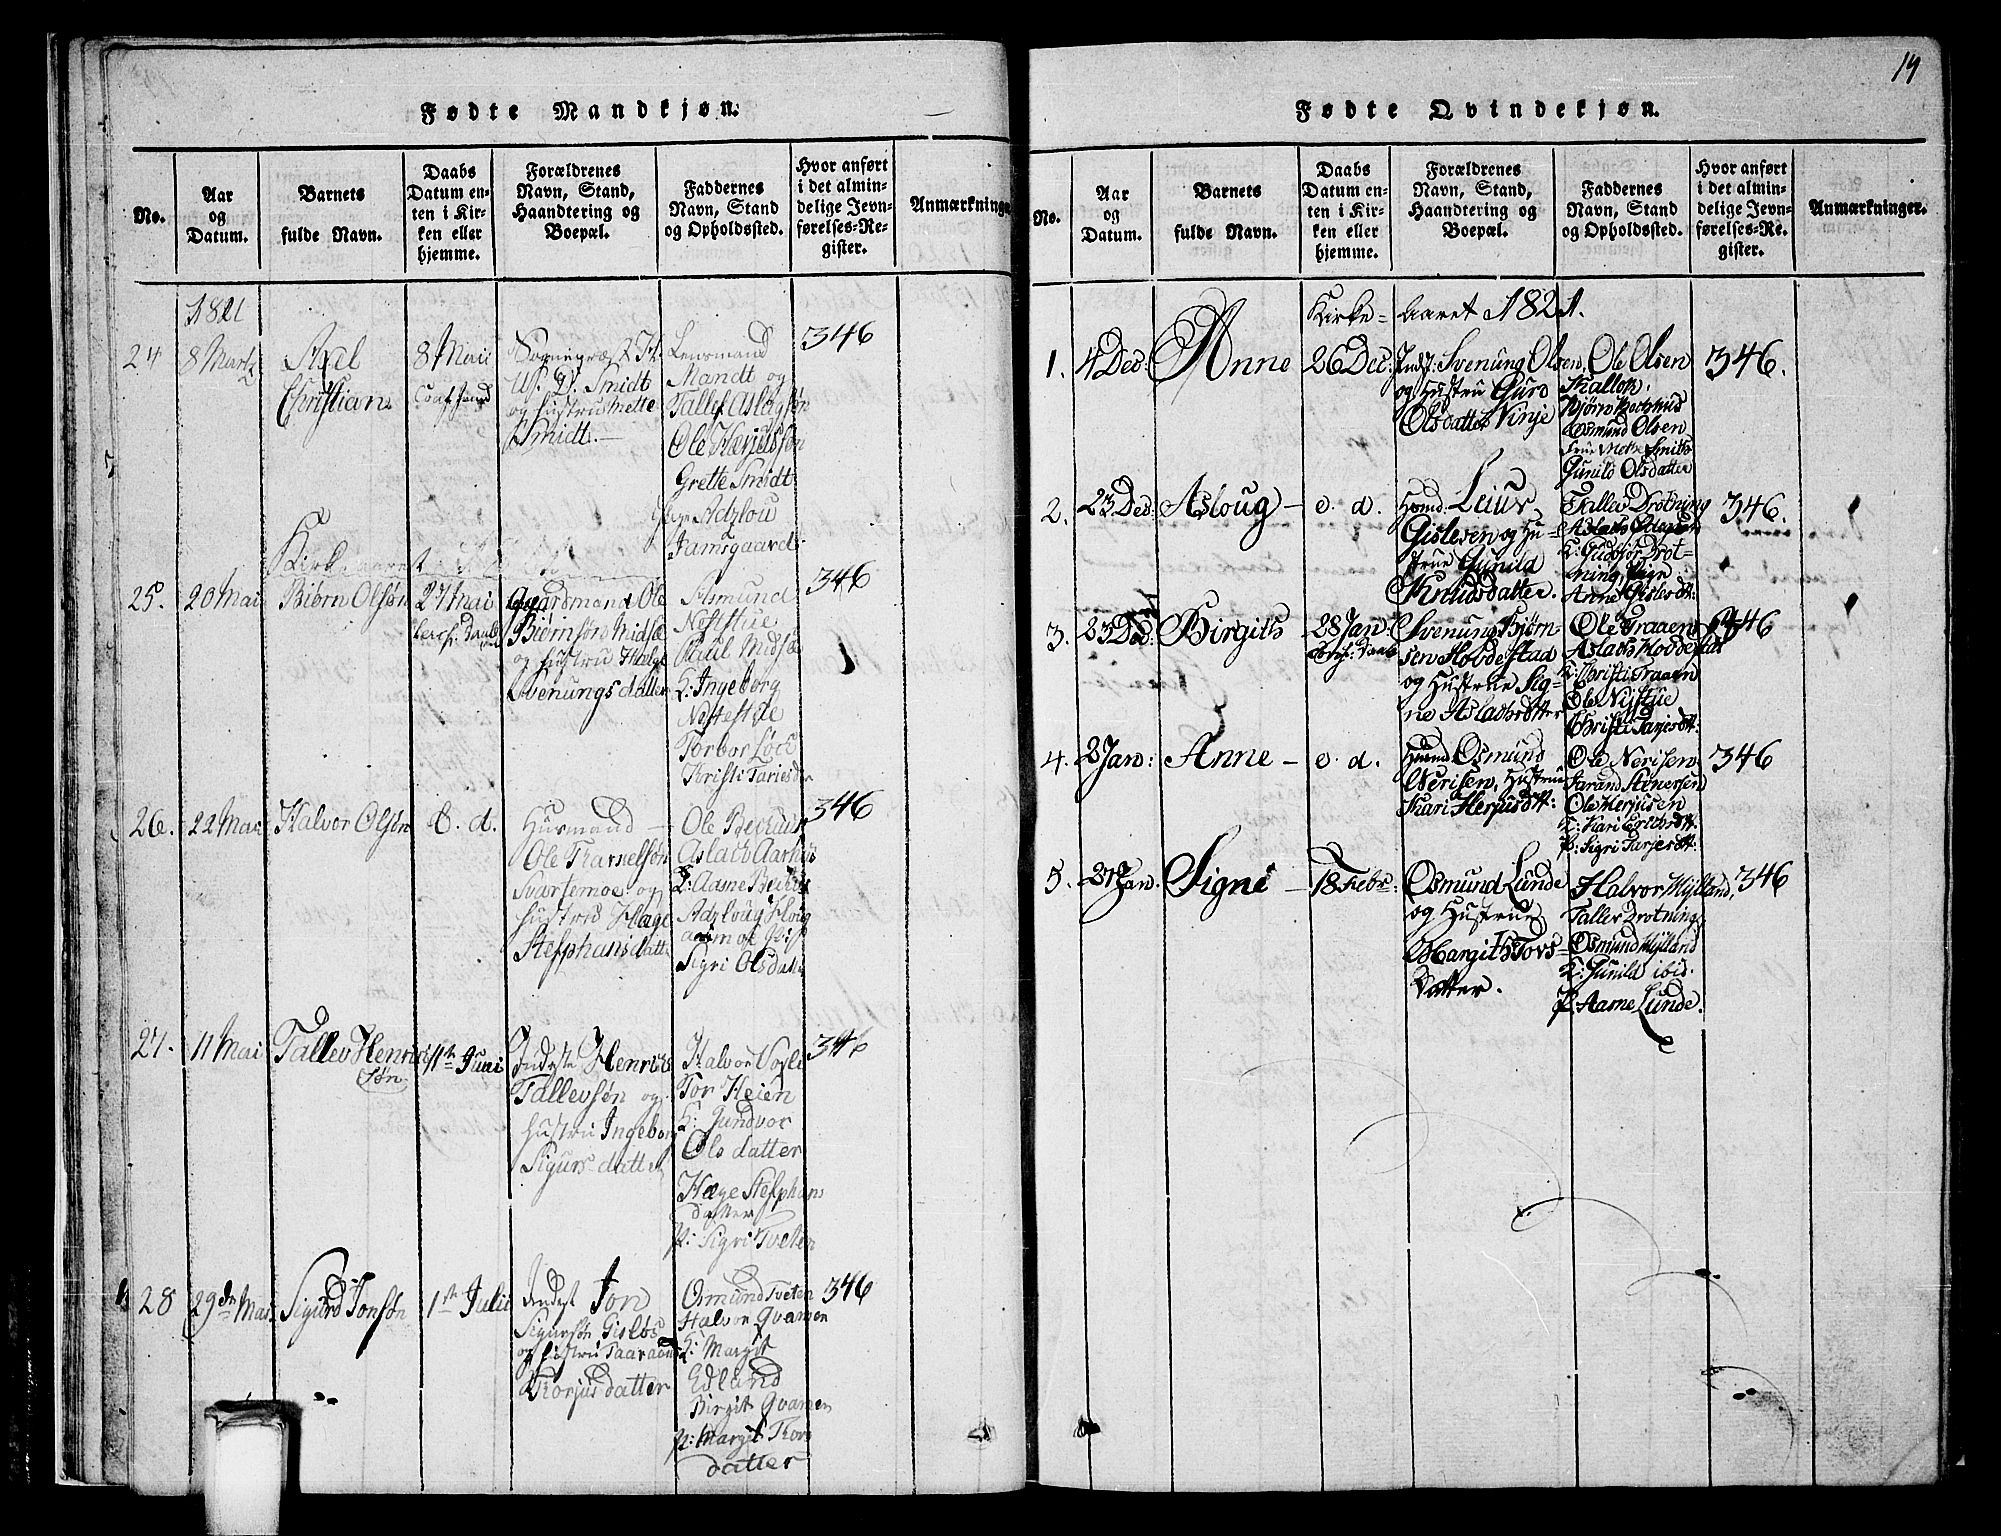 Fødte Mandkjøn.
No.
Aar
og
Datum.
Barnets
fulde Navn.
Daabs
Datum en-
ten i Kir-
ken eller
hjemme.
Forældrenes
Navn, Stand,
Haandtering og
Boepæl.
Faddernes
Navn, Stand
og Opholdssted.
Hvor anført
i det almin-
delige Jevn-
førelses-Re-
gister.
Anmærkninger
1821
24
8 Martz
Axel
Christian
8 Maii
Sognepræst H.
Smidt
og Hustru Mette
Smidt.
Lensmand
Mandt og
Tallef Aslagsøn
Ole Herjussøn
Grette Smidt
Adzlou
Jamsgaard
346
Kirke-aaret
25.
20 Mai
Biørn Olsøn
27 Mai
Gaardmand Ole
Biørnsøn Midbø
og Hustru Hæge
Svenungsdatter
Asmund
Nestestue
Paul Midbø
K: Ingeborg
Nestestue
Torbor Lød
Kristi Tariesd
346
26.
22 Mai
Halvor Olsøn
e. d.
Husmand
Ole Tarielsøn
Svartemoe og
Hustru Hæge
Stephansdatte
Ole Bekhus
Aslach Aarhus
K: Aasne Bekhus
Adzloug Houg
Sigri Olsdatter
346
27.
11 Mai
Tallev Henrics
søn
11te Juni
Inderste Henrick
Tallevsøn og
Hustru Ingeborg
Sigursdatter
Halvor Vosli
Tor Heien
K: Gundvor
Olsdatter
Hæge Stephans
datter
P: Sigri Tveten
346
28
29de Mai
Sigurd Jonsøn
1ste Julii
Inderst Jon
Sigursøn Gisløs
og Hustru Taaraand
Torjusdatter
Osmund Tveten
Halvor Qvamen
K: Margit
Edland
Birgit Qvamen
P: Margit Tors
datter
346
19
Fødte Qvindekjøn.
No.
Aar
og
Datum.
Barnets
fulde Navn.
Daabs
Datum en-
ten i Kir-
ken eller
hjemme.
Forældrenes
Navn, Stand,
Haandtering og
Boepæl.
Faddernes
Navn, Stand
og Opholdssted.
Hvor anført
i det almin-
delige Jevn-
førelses-Re-
gister.
Anmærkninger.
Kirke- Aaret 1821.
1.
4 Dec:
Anne
26 Dec:
Indst: Svenung Olsen,
og Hustru Guro
Olsdatter Vinje
Ole Olsen
Kallop.
Bjørn Bechhus
Osmund Olsen
Frue Mette Smith
Gunild Olsdatter
346.
2.
23 Dec:
Asloug
e. d.
Huusmd: Leiur
Gislesen og Hu-
strue Gunild
Knudsdatter.
Tallev Drotning
K: Gudbjør Drot-
ning, Pige
Anne Gislesdt:
346.
3.
23 Dec:
Birgith
28 Jan:
Svenung Bjørn-
sen Hovdestad
og Hustrue Sig-
ne Aslachsdatter
Ole Traaen
Aslach Hovdestad
K: Christi Traaen
Ole Nystue
Christi Tarjesdt:
346
4.
2 Jan:
Anne
e. d.
Huusmd Osmund
Nerisen, Hustrue
Kari Herjusdtt:
Ole Nerisen
Tarand Stenersen
Ole Herjusen
K: Kari Erichsdtt.
P: Sigri Tarjesdtt:
346
5.
27 Jan.
Signe
18 Febr:
Osmund Lunde
og Hustrue
Margith Tors-
datter.
Halvor Mylland,
Tallev Drotning
Osmund Mylland
K: Gunild ibid.
P. Aasne Lunde.
346